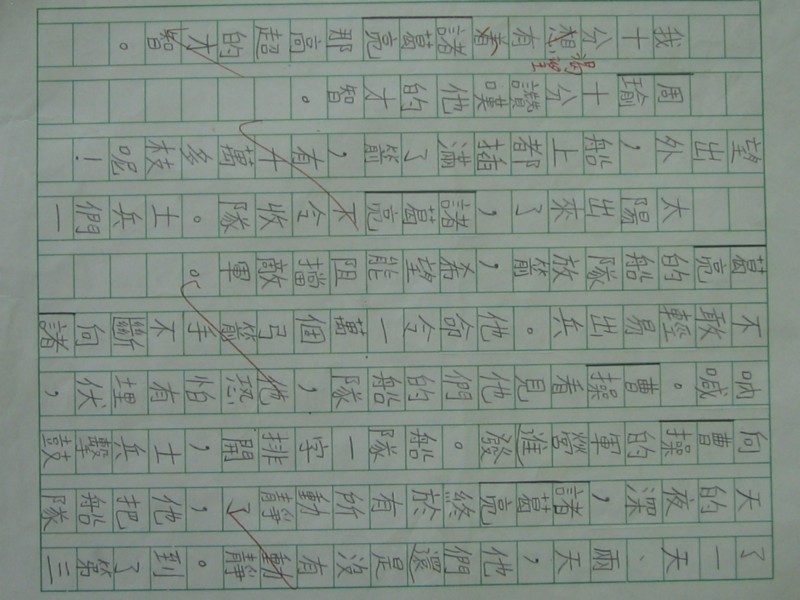 了一天、兩天，他們還是沒有動靜。到了第三
天的夜深，諸葛亮終於有所動靜了，他把船隊
向曹操的軍營進發。船隊一字排開，士兵擊鼓
吶喊。曹操看見他們的船隊，他恐怕有埋伏，
不敢輕易出兵。他命令一萬個弓箭手不斷向諸
葛亮的船隊放箭，希望能阻擋敵軍。
太陽出來了，諸葛亮下令收隊。士兵們一
望出外，船上都插滿了箭，有十萬多枝呢！
周瑜十分讚嘆他的才智。
渴望
我十分想有着諸葛亮那高超的才智。